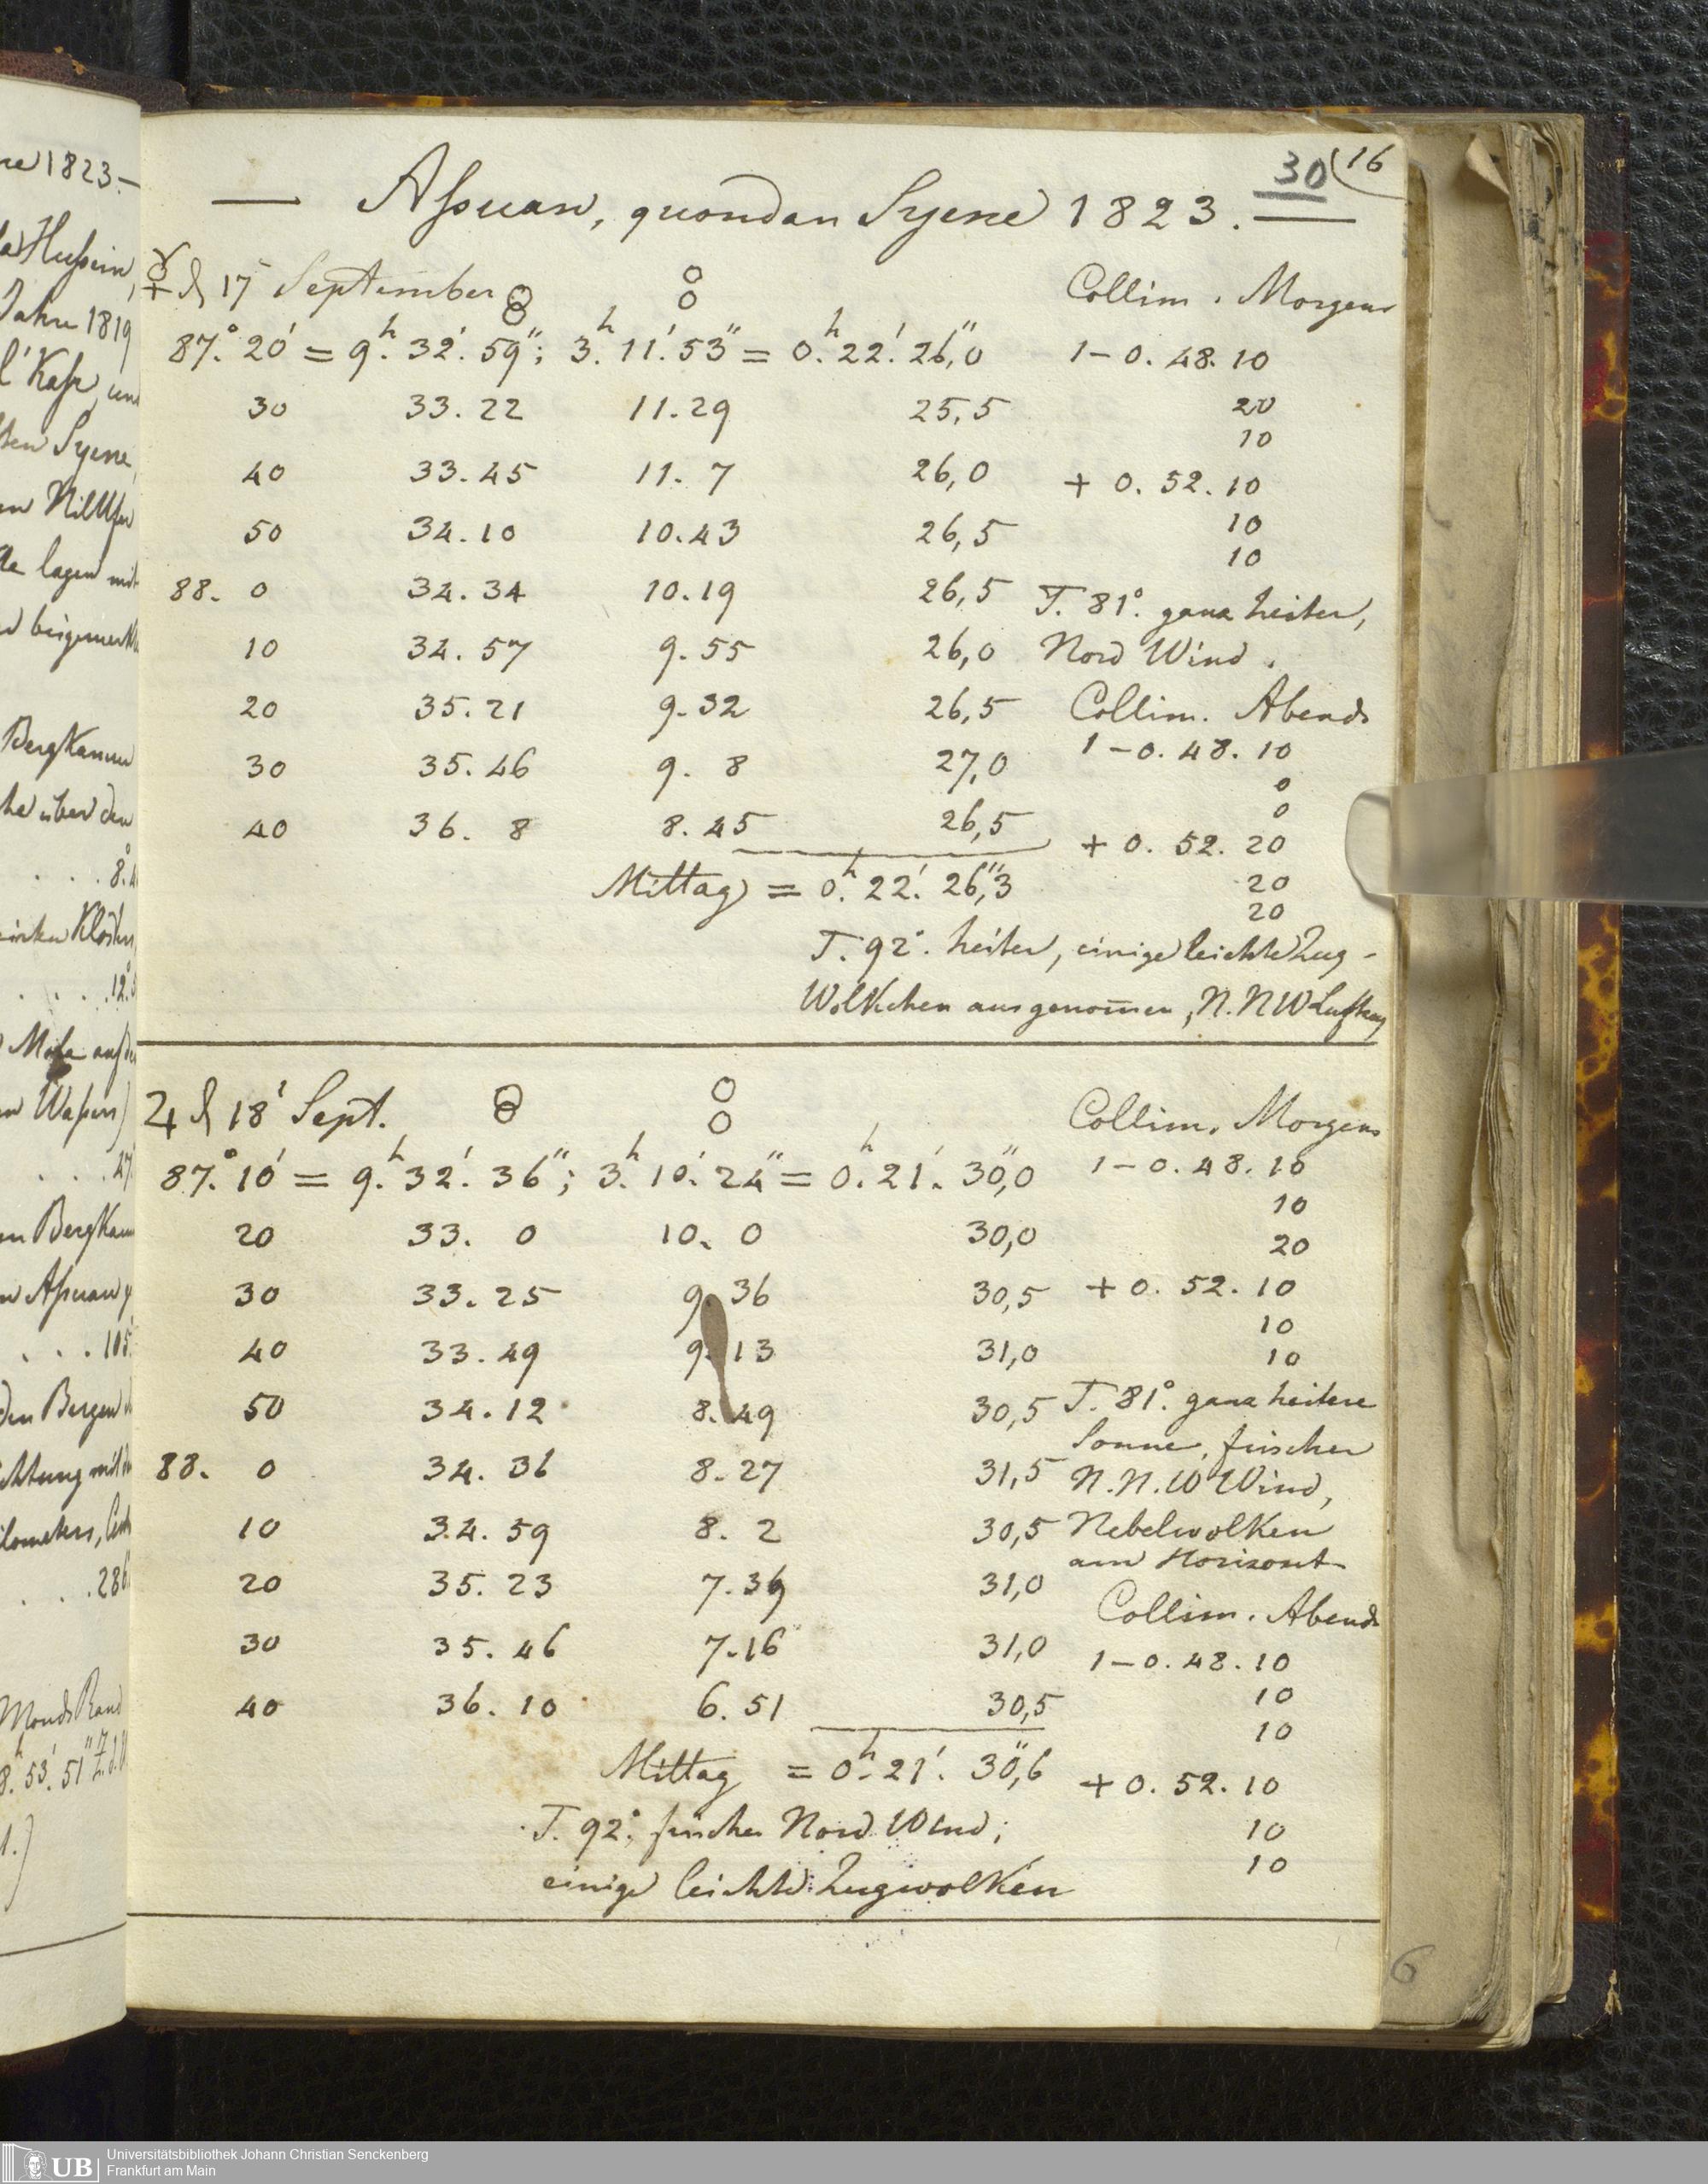 30 (16
— Aſsuan, quondan Syene 1823. —
☿ d 17 September
Collim. Morgens
87.° 20' = 9.h 32.' 59"; 3.h 11.' 53" = 0.h 22.' 26",0 1 – 0. 48. 10
30 33. 22 11. 29 25,5 20
10
40 33. 45 11. 7 26,0 + 0. 52. 10
50 34. 10 10. 43 26,5 10
10
88. 0 34. 34 10. 19 26,5 T. 81°. ganz heiter,
10 34. 57 9. 55 26,0 Nord Wind.
20 35. 21 9. 32 26,5 Collim. Abends
30 35. 46 9. 8 27,0 1 – 0. 48. 10
0
0
40 36. 8 8. 45 26,5 + 0. 52. 20
Mittag = 0.h 22.' 26",3 20
20
T. 92°. heiter, einige leichte Zug-
Wolkchen ausgenom̄en, N.NW Luftzug
♃ d 18' Sept. Collim. Morgens
87.° 10' = 9.h 32.' 36"; 3.h 10.' 24" = 0.h 21.' 30",0 1 – 0. 48. 10
10
20 33. 0 10. 0 30,0 20
30 33. 25 9. 36 30,5 + 0. 52. 10
10
40 33. 49 9. 13 31,0 10
50 34. 12 8. 49 30,5 T. 81°. ganz heitere
Sonne, frischer
88. 0 34. 36 8. 27 31,5 N.N.W Wind,
10 34. 59 8. 2 30,5 Nebelwolken
am Horizont
20 35. 23 7. 39 31,0
Collim. Abends
30 35. 46 7. 16 31,0 1 – 0. 48. 10
40 36. 10 6. 51 30,5 10
10
Mittag = 0.h 21.' 30",6 + 0. 52. 10
T. 92°, frischer Nord Wind; 10
einige leichte Zugwolken 10
6
re 1823. —
Hussein,
Jahre 1819
l' Kasr, und
Syene,
Nil Ufer
lagen mit
Bergkamm
he über den
8.
12.
Waßers)
Bergkamm
Aſsuan
105
den Bergen
286
Monds Rand
8.h 53.' 51"
UB Universitätsbibliothek Johann Christian Senckenberg
Frankfurt am Main